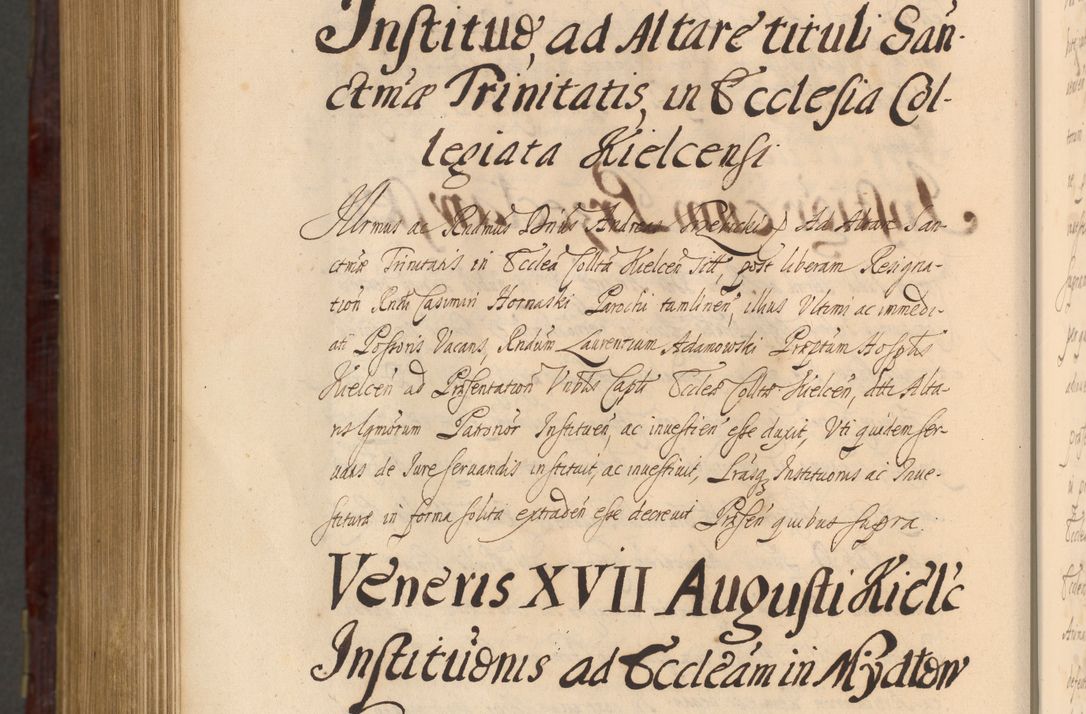 Institũo, ad Altare tituli San-
ctmæ Trinitatis, in Ecclesia Col-
legiata Kielcensi
Illrmus ac Rndmus Dnus Andreas Trzebicki Ad Altare San-
ctmæ Trinitatis in Ecclea Collta Kielcen̄ Titt, post liberam Resigna-
tion̄ Rndi Casimiri Hornaski Parochi tumlinen̄, illius Vltimi ac immedi-
ati Possoris Vacans, Rndum Laurentium Adamowski Præptum Hosplis
Kielcen̄ ad Præsentation̄ Vnblis Caplli Eccleæ Colltæ Kielcen̄, dtti Alta-
ris Patronor̄ Instituen̄, ac inuestien̄ esse duxit, Vti quidem ser-
uatis de Iure seruandis instituit, ac inuestiuit, Lrasq Institutionis ac Inue-
stituræ in forma solita extraden̄ esse decreuit Præsen̄ quibus supra.
Veneris XVII Augusti Kielc̄
Institũonis ad Eccleam in Mydłow